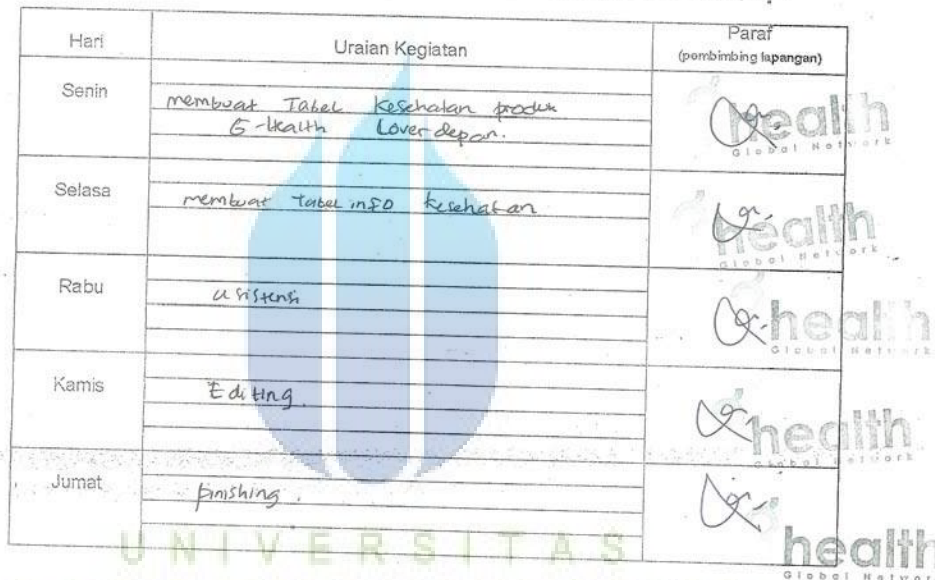 Hari Uraian Kegiatan Paraf
(pembimbing lapangan)
Senin
membuat Tabel Kesehatan produk
G-Health Cover depan.
health
Global Network
Selasa
membuat tabel info kesehatan
health
Global Network
Rabu
asistensi
health
Global Network
Kamis
Editing.
health
Global Network
Jumat
finishing.
health
Global Network
UNIVERSITAS